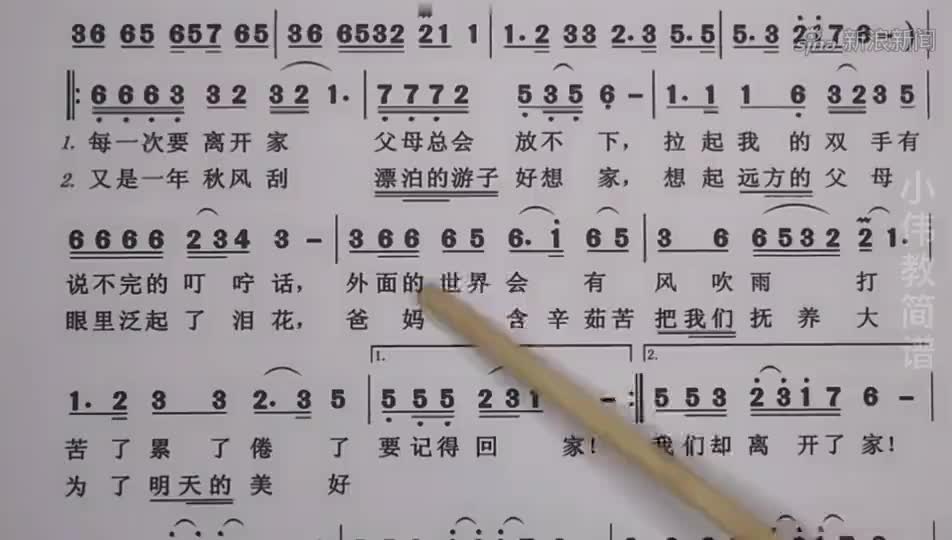 36 65 657 65 | 36 6532 21 1 | 1.2 33 2.3 5.5 | 5.3 2176 - )
sina 新浪新闻
‖: 6663 32 32 1. | 7772 535 6 - | 1.1 1 6 3235
1. 每一次要 离开家 父母总会 放不 下, 拉起我 的双手有
2. 又是一年 秋风刮 漂泊的游子 好想 家, 想起远方的父母
6666 234 3 - | 366 65 6.1 65 | 3 6 6532 21.
说不完的叮 咛话, 外面的世界会 有 风吹雨 打
眼里泛起了 泪花, 爸 妈 含辛茹苦 把我们抚 养 大
1. 2.
1.2 3 3 2.3 5 | 555 231 - :‖ 553 2317 6 -
苦了累 了倦 了 要记得回 家! 我们却离 开了家!
为了明天的美 好
小伟教简谱